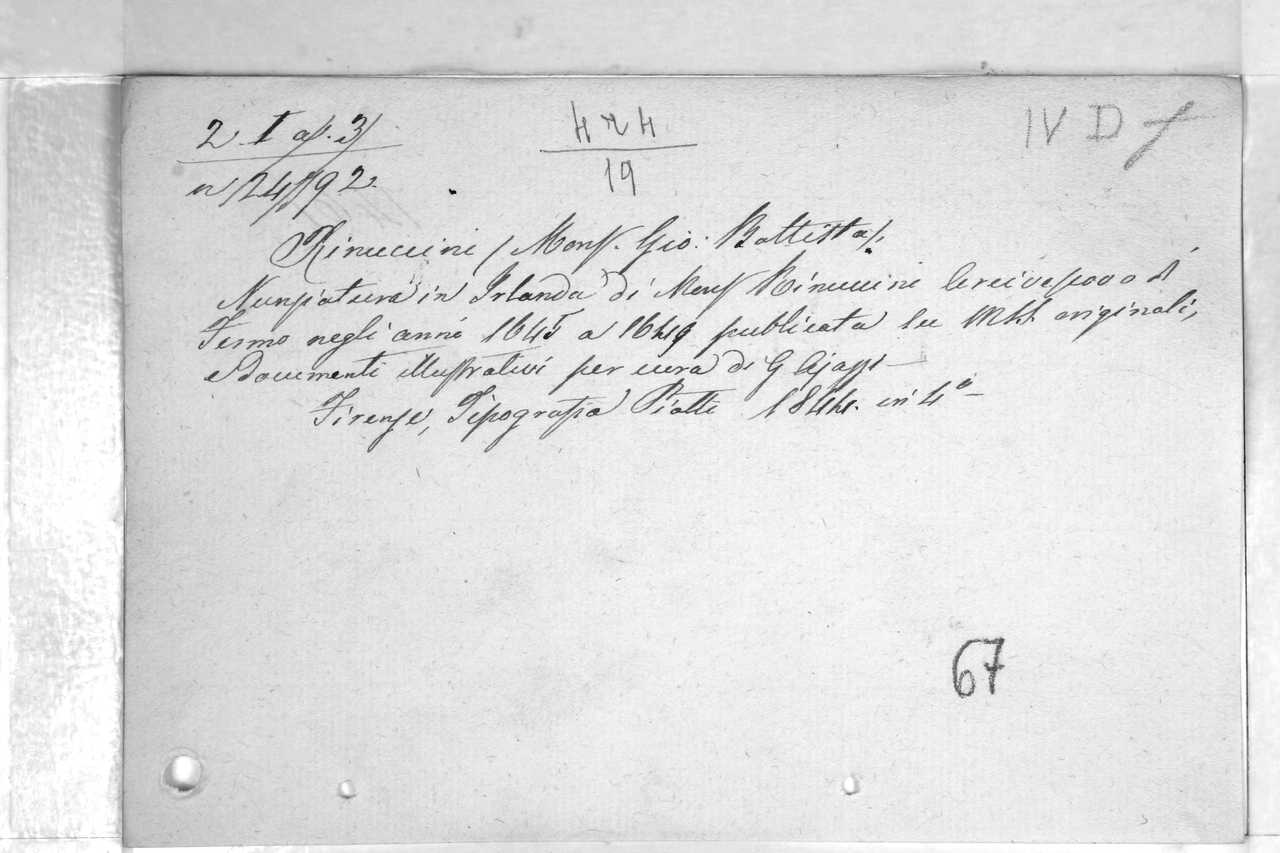 2 I
4 r 4
19
IV D f
n 24/92.
Rinuccini (Mons. Gio: Battista).
Nunziatura in Irlanda di Mons Rinuccini Arcivescovo di
Fermo negli anni 1645 a 1649 publicata su MSS. originali,
e documenti illustrativi per cura di G Ajazzi -
Firenze, Tipografia Piatti 1844. in 4° -
67